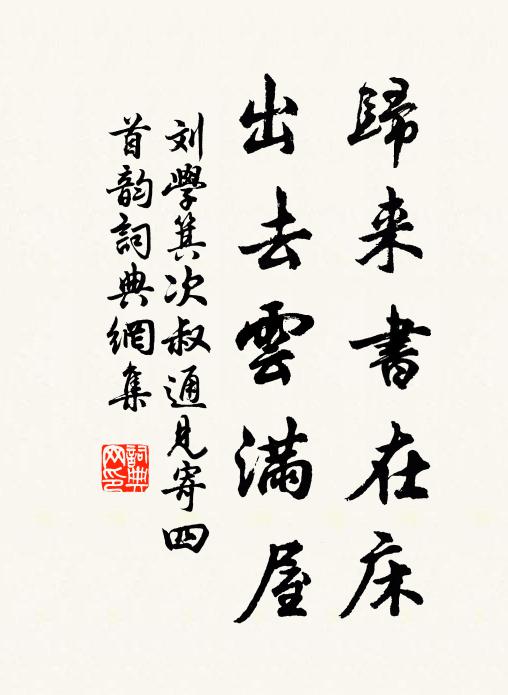 歸来書在床
出去雲滿屋
刘學箕次叔通見寄四
首韵詞典網集
詞典
网印